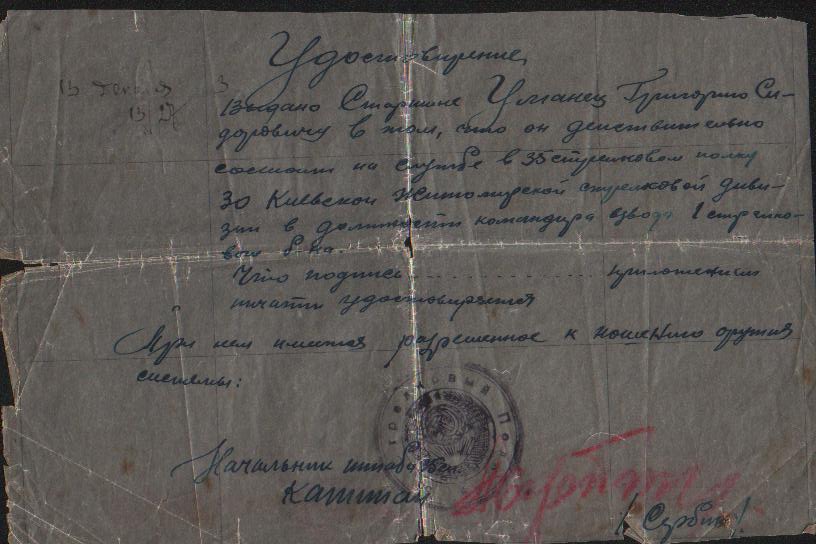 Удостовирение
13
13 27
Выдано Старшине Уманец Григорию Си-
доровичу в том, что он действительно
состоит на службе в 35 стрелковом полку
30 Киевской Житомирской стрелковой диви-
зии в должности командира взвода 1 стрелко-
вого б-на.
Что подпись............приложением
пичати удостовиряется
При нем имется разрешенное к ношению оружия
системы:
Стрелковый Пол
Начальник штаба 35 сп.
Капитан
/ Сербин /